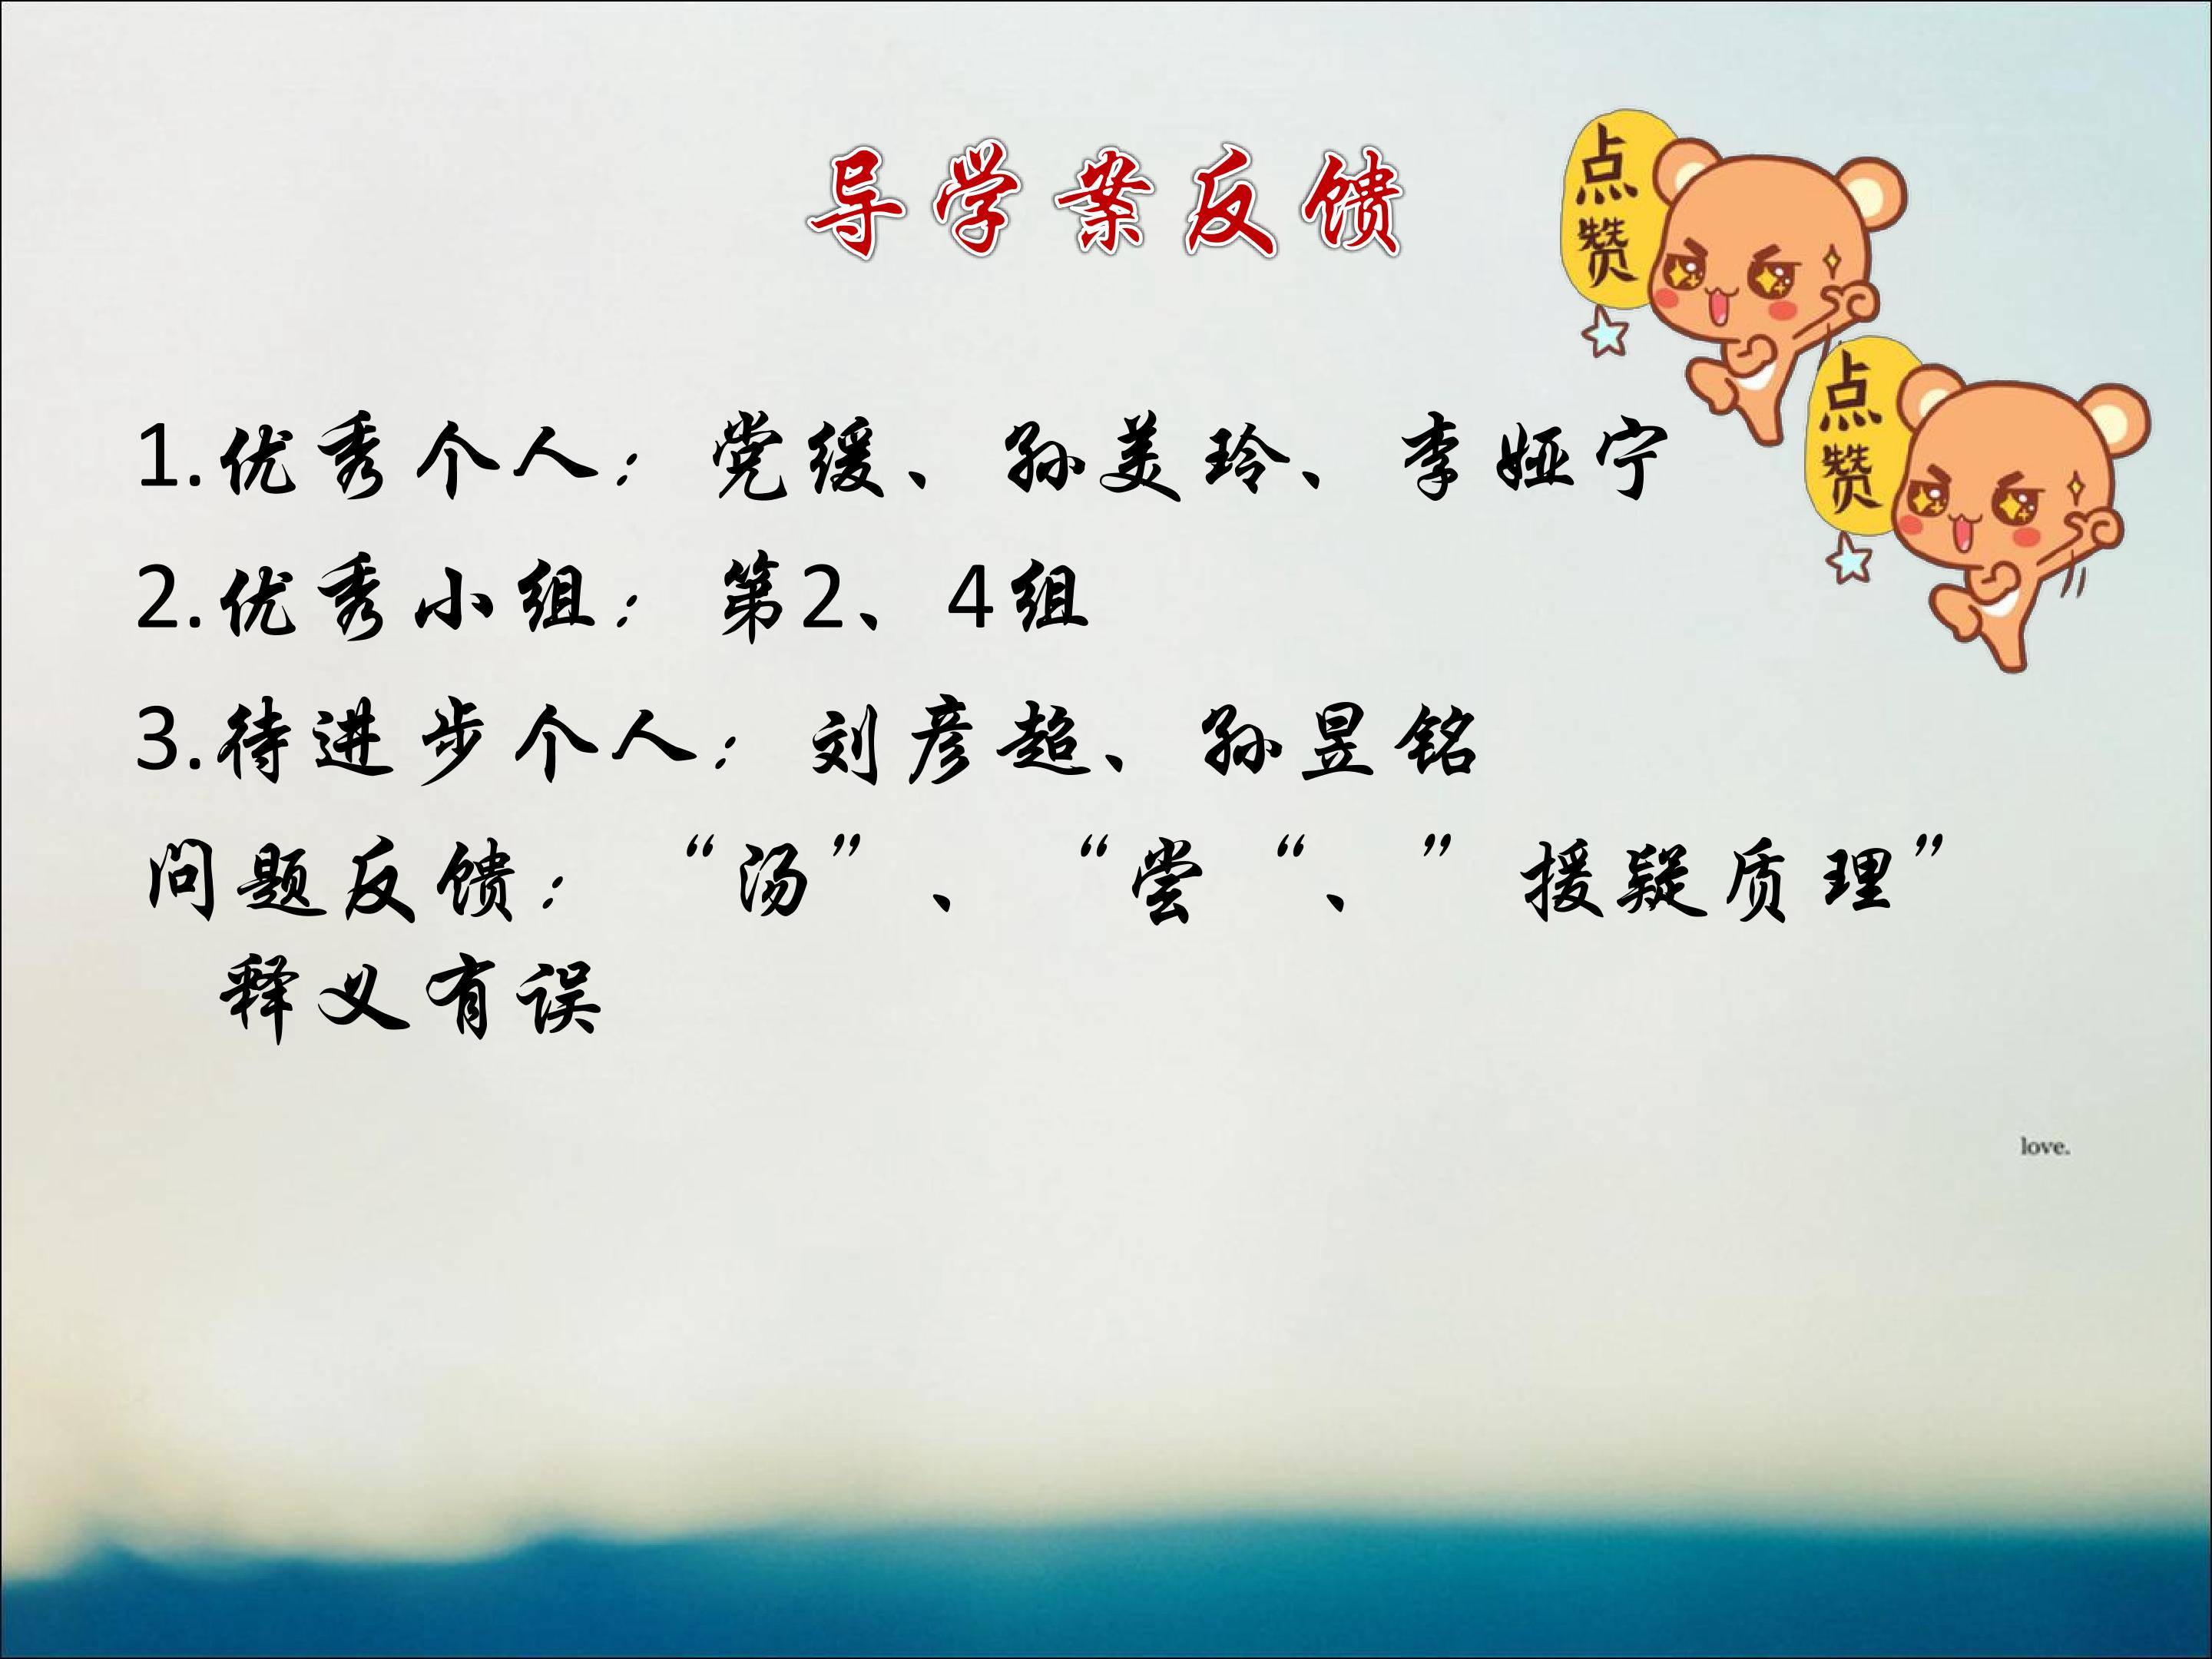 导学案反馈
点赞
点赞
1.优秀个人：党缓、孙美玲、李娅宁
2.优秀小组：第2、4组
3.待进步个人：刘彦超、孙昱铭
问题反馈：“汤”、“尝“、”援疑质理”
释义有误
love.